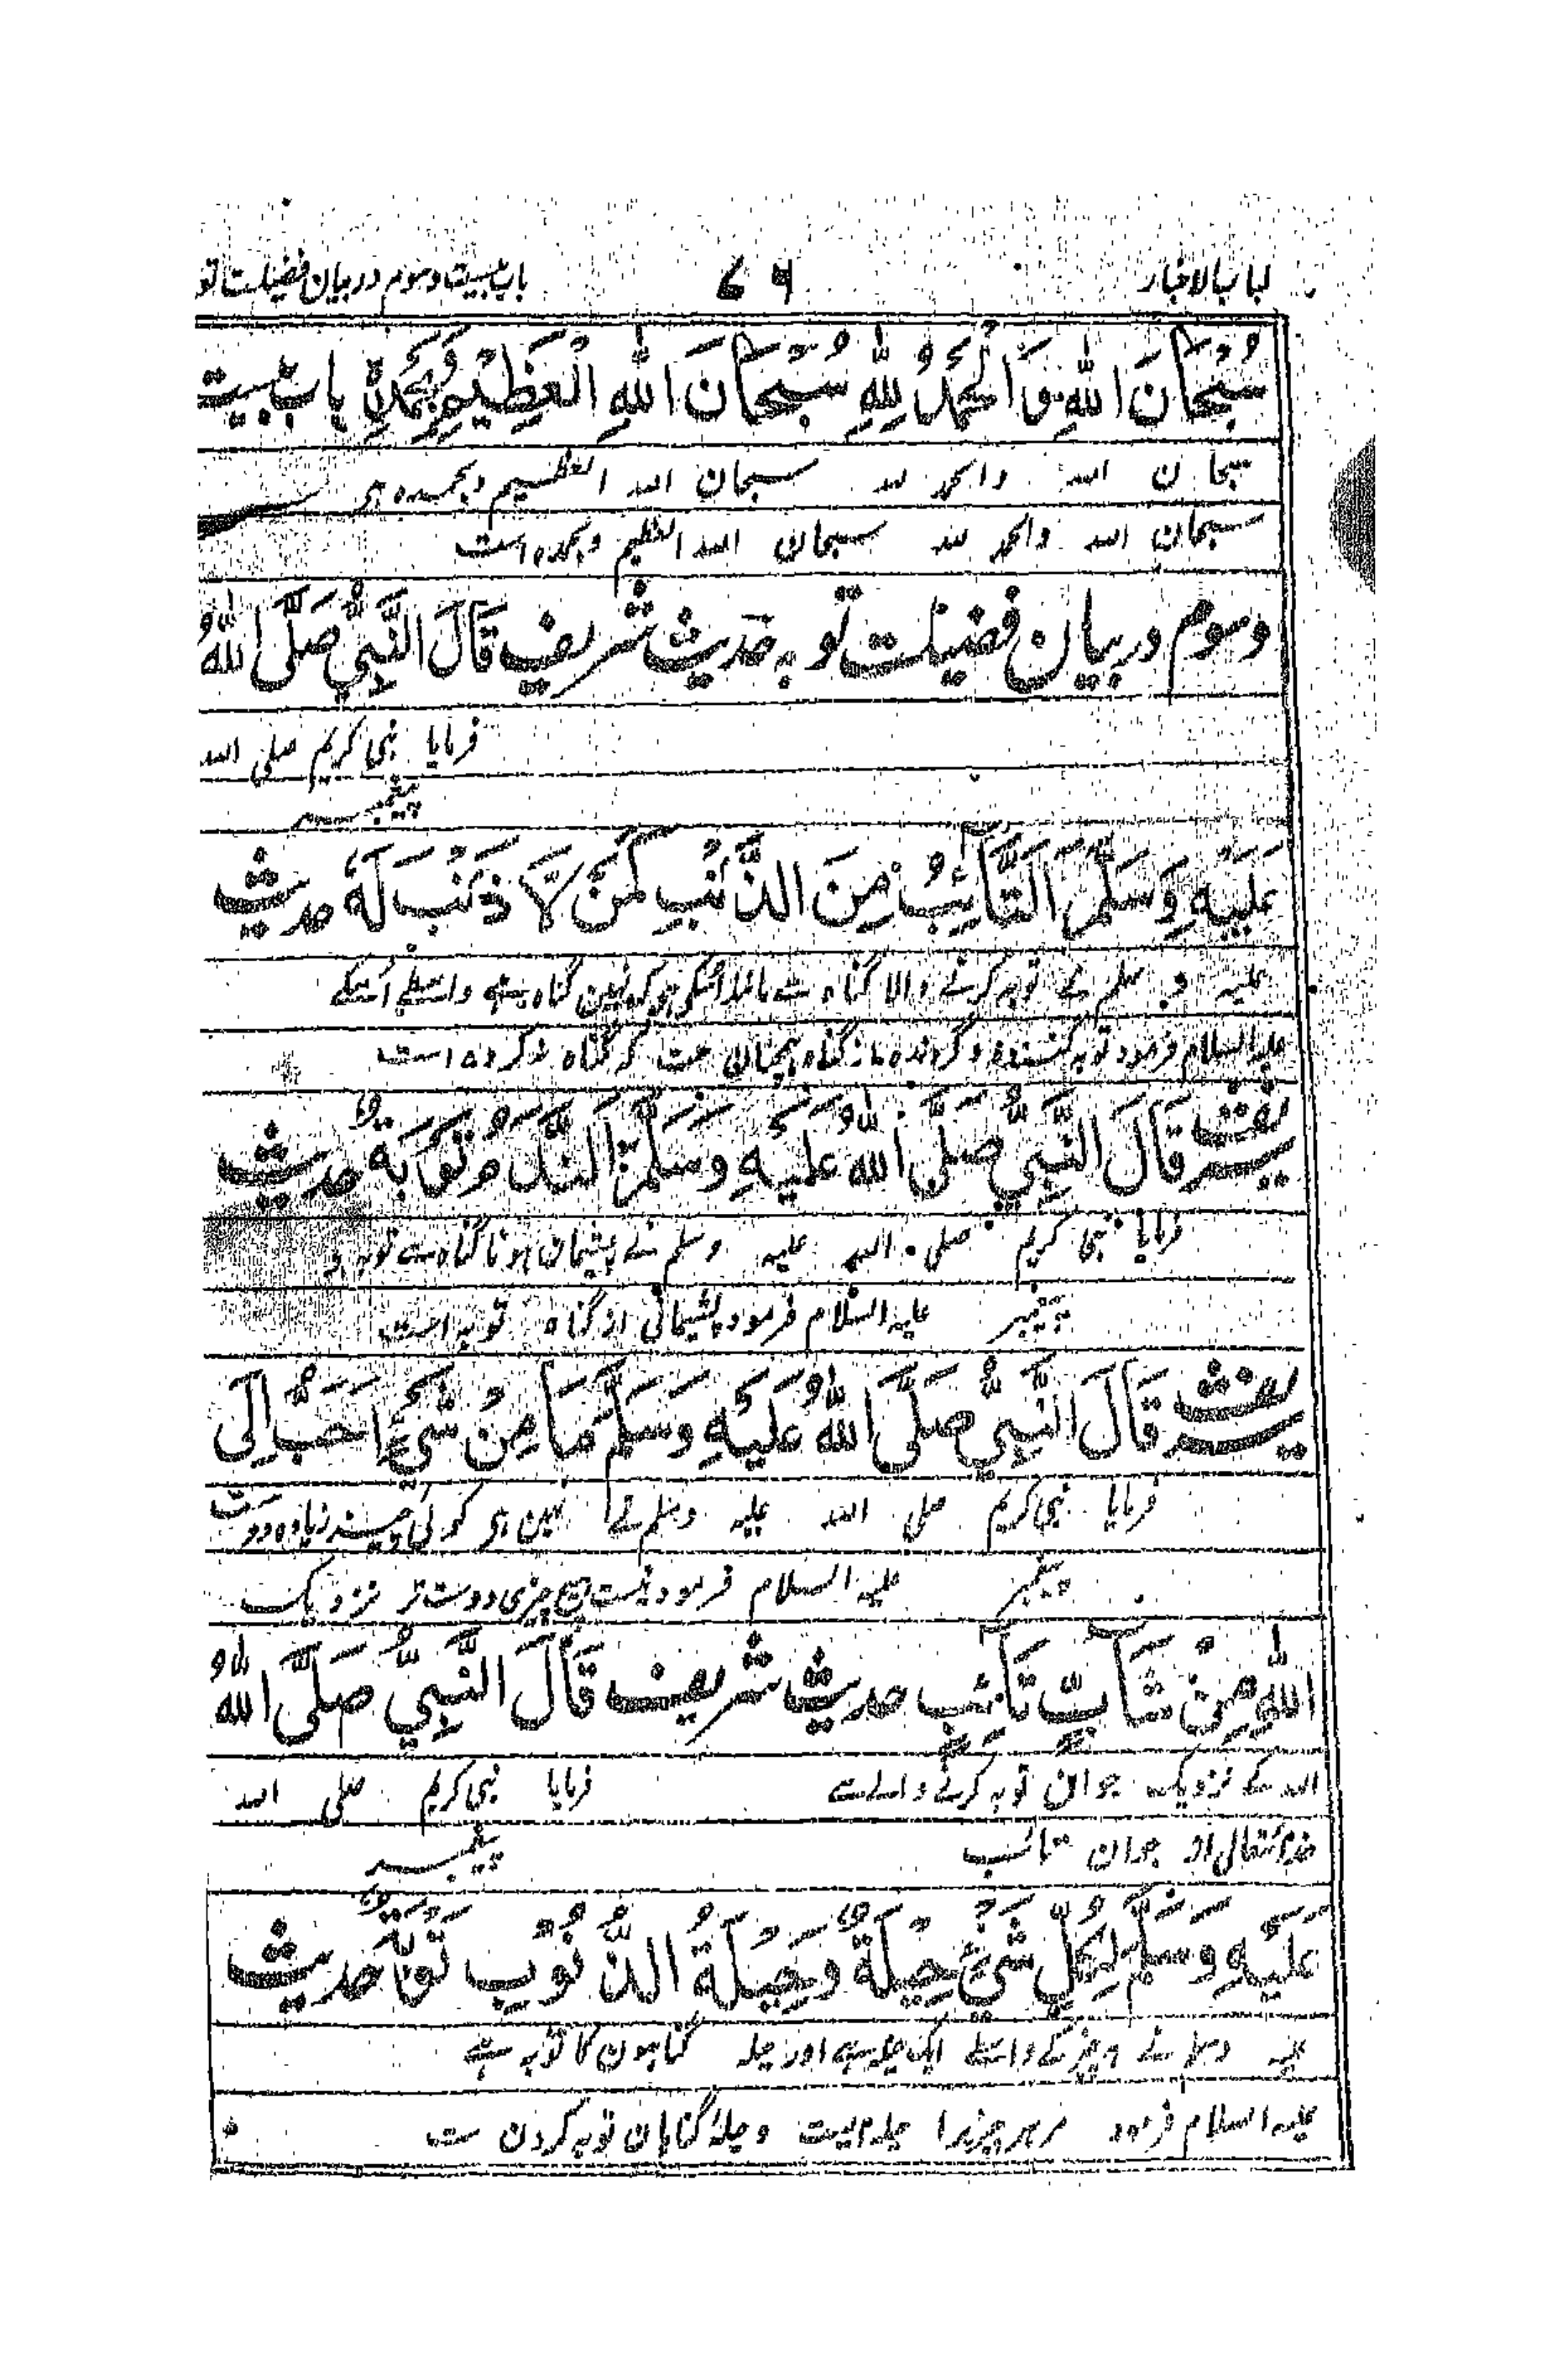 لباب الاخبار ۶۹ باب بیست وسوم در بیان فضیلت تو
سُبْحَانَ اللّٰهِ وَالْحَمْدُ لِلّٰهِ سُبْحَانَ اللّٰهِ الْعَظِيْمِ وَبِحَمْدِهٖ باب بیست
سبحان اللہ والحمد للہ سبحان اللہ العظیم وبحمدہ ہی
سبحان اللہ والحمد للہ سبحان اللہ العظیم وبحمدہ است
وسوم در بیان فضیلت توبہ حدیث شریف قَالَ النَّبِيُّ صَلَّى اللّٰهُ
فرمایا نبی کریم صلی اللہ
پیغمبر
عَلَيْهِ وَسَلَّمَ اَلتَّائِبُ مِنَ الذَّنْبِ كَمَنْ لَّا ذَنْبَ لَهٗ حدیث
علیہ و سلم نے توبہ کرنے والا گناہ سے مانند اسکی ہی کہ نہین گناہ ہے واسطے اُسکے
علیہ السلام فرمود توبہ کنندہ از گناہ ہمچنان ست کہ گناہ نکردہ است
شریف قَالَ النَّبِيُّ صَلَّى اللّٰهُ عَلَيْهِ وَسَلَّمَ اَلنَّدَمُ تَوْبَةٌ حدیث
فرمایا نبی کریم صلی اللہ علیہ وسلم نے پشیمان ہونا گناہ سے توبہ ہے
پیغمبر علیہ السلام فرمود پشیمانی از گناہ توبہ است
شریف قَالَ النَّبِيُّ صَلَّى اللّٰهُ عَلَيْهِ وَسَلَّمَ مَا مِنْ شَيْءٍ اَحَبُّ اِلَى
فرمایا نبی کریم صلی اللہ علیہ وسلم نے نہین ہی کوئی چیز زیادہ دوست
پیغمبر علیہ السلام فرمود نیست ہیچ چیزی دوست تر نزدیک
اللّٰهِ مِنْ شَابٍّ تَائِبٍ حدیث شریف قَالَ النَّبِيُّ صَلَّى اللّٰهُ
اللہ کے نزدیک جوان توبہ کرنے والے سے فرمایا نبی کریم صلی اللہ
خدایتعالی از جوان تائب پیغمبر
عَلَيْهِ وَسَلَّمَ لِكُلِّ شَيْءٍ حِيْلَةٌ وَحِيْلَةُ الذُّنُوْبِ تَوْبَةٌ حدیث
علیہ وسلم نے ہر چیز کے واسطے ایک حیلہ ہے اور حیلہ گناہون کا توبہ ہے
علیہ السلام فرمود مر ہر چیز را حیلہ ایست و حیلۂ گناہان توبہ کردن ست